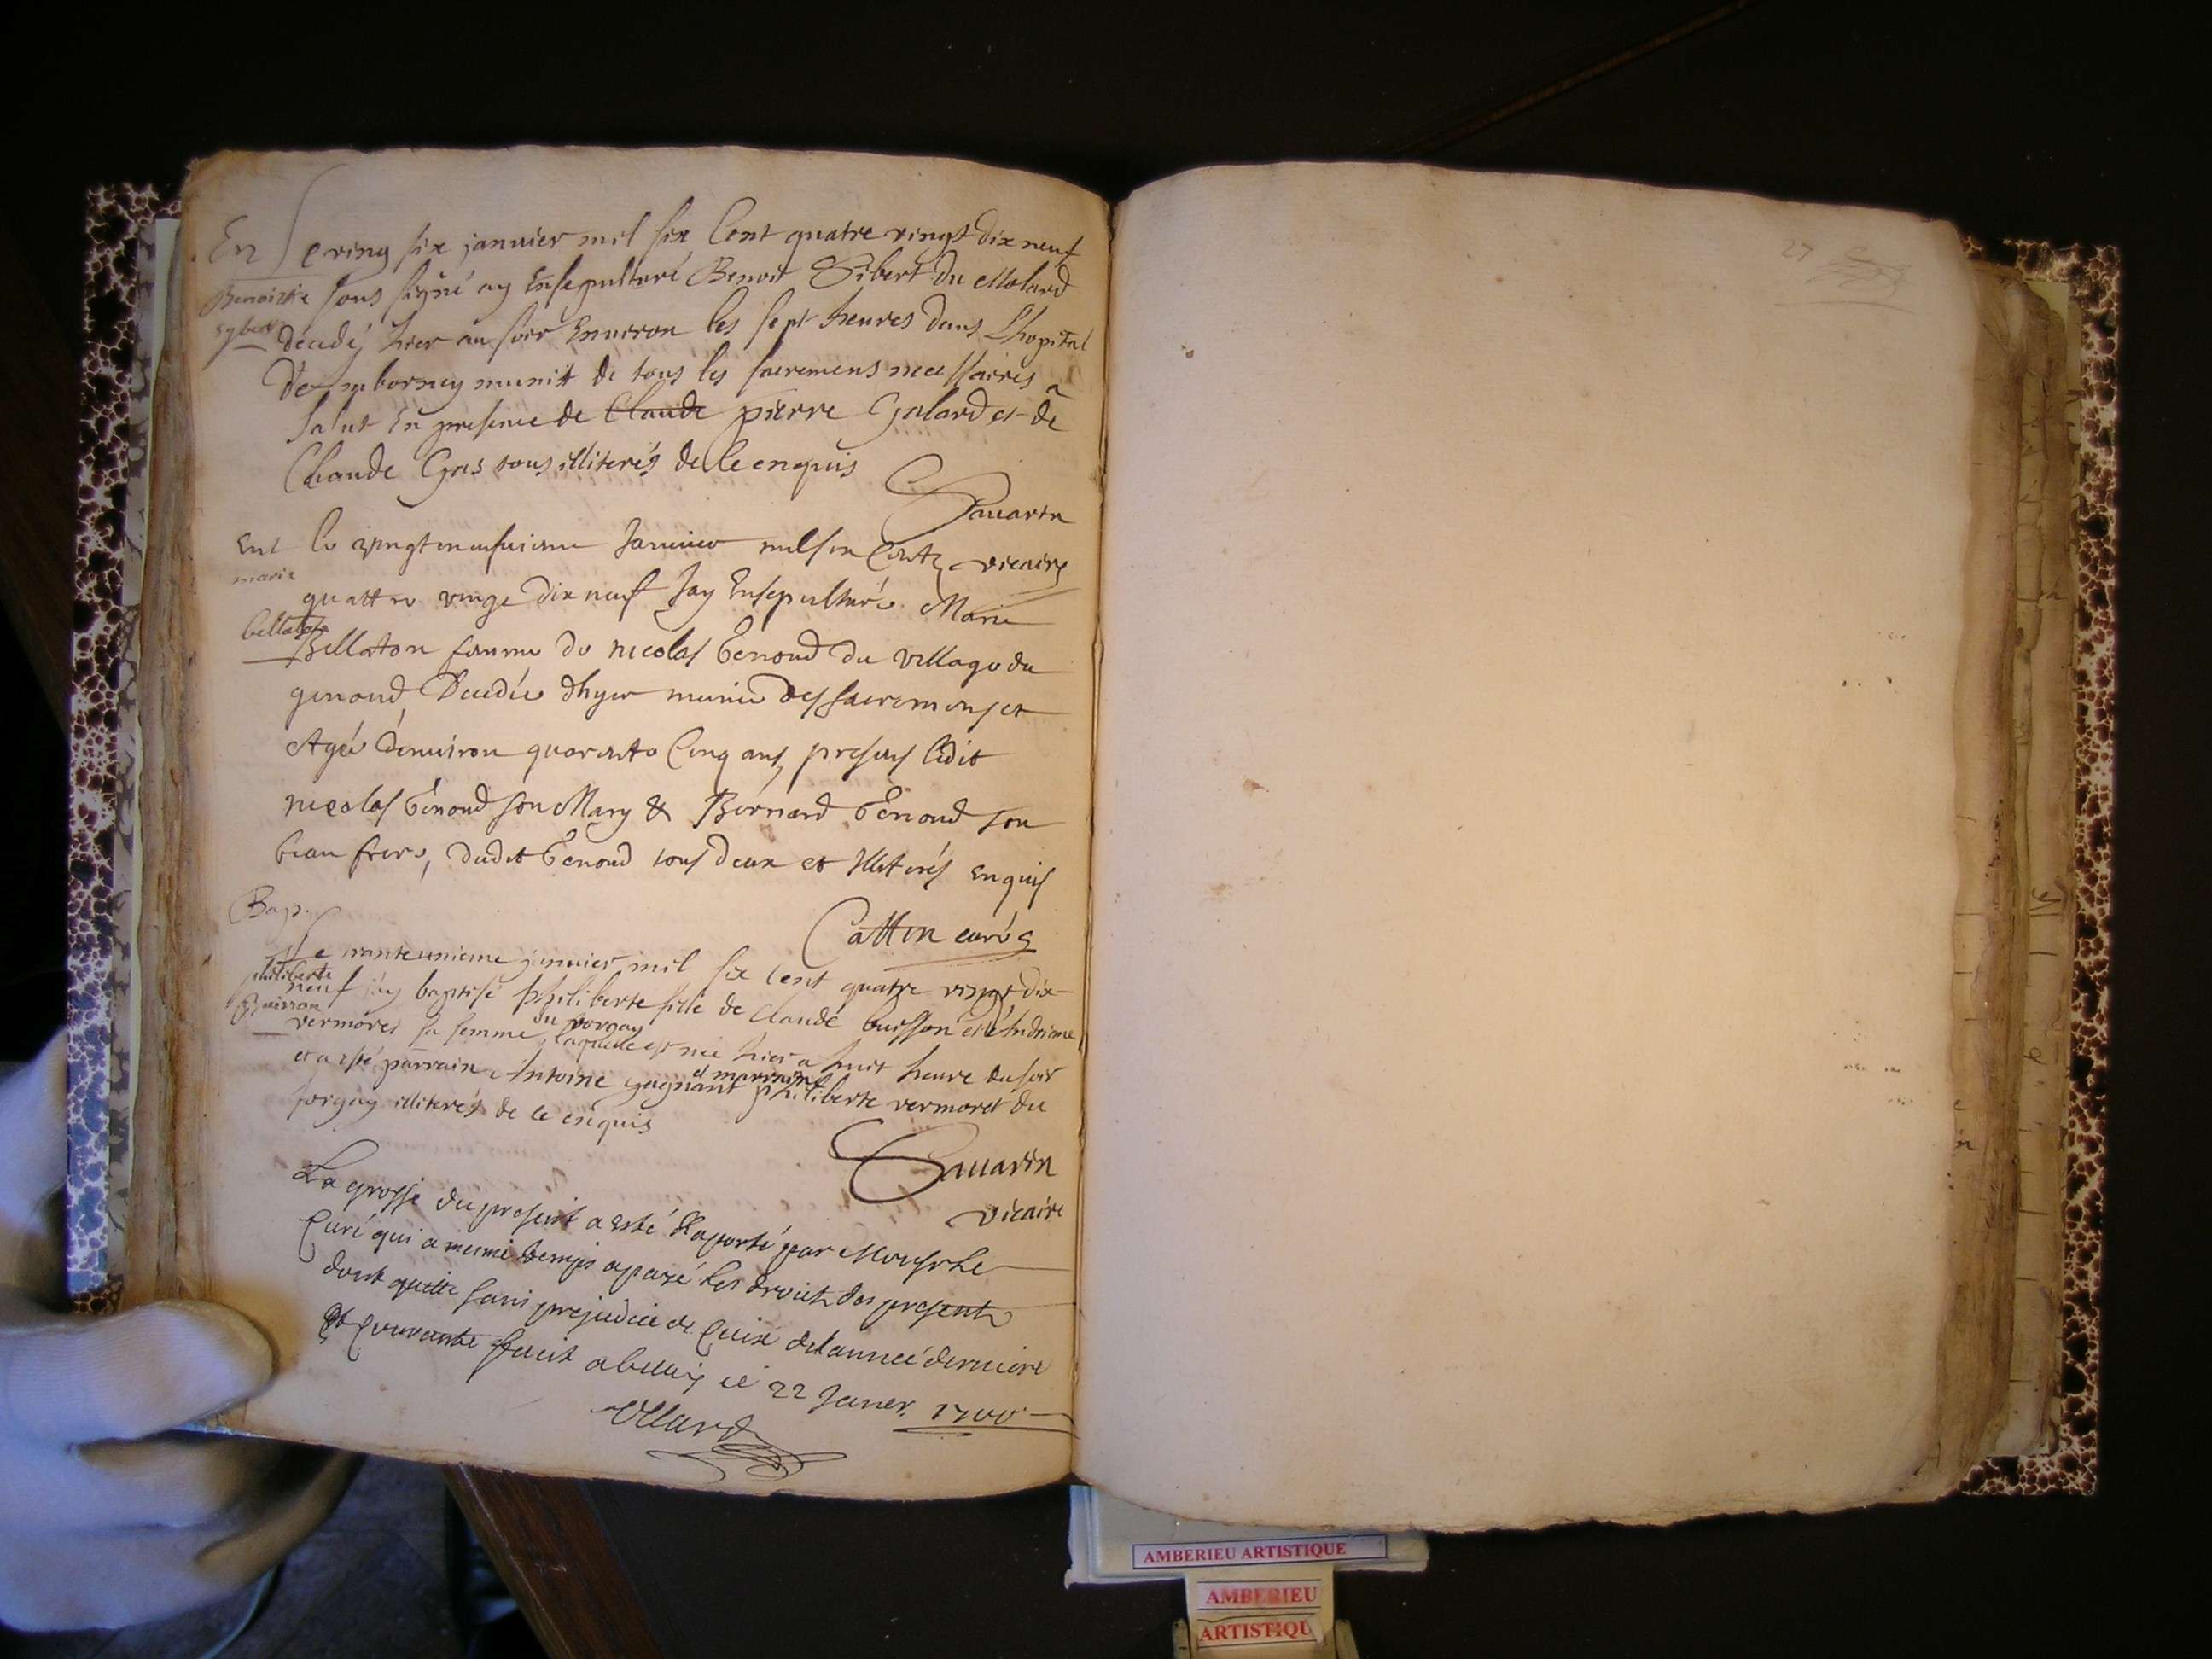 En
Benoist
Sybert
Le ving six janvier mil six Cent quatre vingt dix neuf
sous signé ay Ensepulturé Benoit Sibert du Molard
décédé hier au soir Environ les sept heures dans L'hopital
D'embornay munit de tous les sacremens necessaires a
salut En presence de Claude pierre Galard et de
Claude Gros tous illiterés de ce enquis
Savarin
vicaire
Ent
marie
bellaton
Le vingt neufviesme Janvier mil six Centz
quattre vingt dix neuf Jay Ensepulturé Marie
Bellaton femme de nicolas Genoud du village du
genoud, Decedée dhyer munie des sacremens et
Agée denviron quarante Cinq ans, presens ledit
nicolas Genoud son Mary & Bernard Genoud son
beau frere, dudit Genoud tous deux et Illiterés enquis
Cattin curé
Bap.
philiberte
Buisson
Le trante unieme janvier mil six cent quatre vingt dix
neuf j'ay baptisé philiberte fille de Claude buisson et d'Andrienne
vermorel sa femme du sorgay laquelle est née hier a huit heure du soir
et a esté parrain Antoine gagnant et marraine philiberte vermoret du
sorgay illiterés de ce enquis
Savarin
vicaire
La grosse du present a esté Raporté par Monsr Le
Curé qui a mesme temps a payé les droits des presents
dont quitte sans prejudice de Ceux de l'année derniere
Et Courante fait a belley ce 22 Janer. 1700
27
AMBERIEU ARTISTIQUE
AMBERIEU
ARTISTIQU